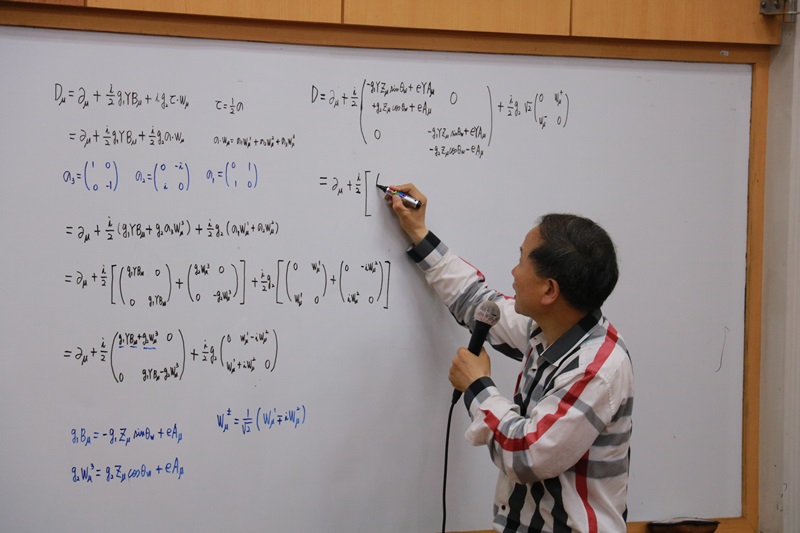 Dμ = ∂μ + i/2 g₁YBμ + i g₂ τ·Wμ    τ = 1/2 σ
= ∂μ + i/2 g₁YBμ + i/2 g₂σ·Wμ    σ·Wμ = σ₁Wμ¹ + σ₂Wμ² + σ₃Wμ³
σ₃ = (1 0; 0 -1)    σ₂ = (0 -i; i 0)    σ₁ = (0 1; 1 0)
= ∂μ + i/2 (g₁YBμ + g₂σ₃Wμ³) + i/2 g₂ (σ₁Wμ¹ + σ₂Wμ²)
= ∂μ + i/2 [(g₁YBμ 0; 0 g₁YBμ) + (g₂Wμ³ 0; 0 -g₂Wμ³)] + i/2 g₂ [(0 Wμ¹; Wμ¹ 0) + (0 -iWμ²; iWμ² 0)]
= ∂μ + i/2 (g₁YBμ + g₂Wμ³ 0; 0 g₁YBμ - g₂Wμ³) + i/2 g₂ (0 Wμ¹ - iWμ²; Wμ¹ + iWμ² 0)
g₁Bμ = -g₁Zμ sinθw + eAμ    Wμ± = 1/√2 (Wμ¹ ∓ iWμ²)
g₂Wμ³ = g₂Zμ cosθw + eAμ
D = ∂μ + i/2 (-g₁YZμ sinθw + eYAμ + g₂Zμ cosθw + eAμ 0; 0 -g₁YZμ sinθw + eYAμ - g₂Zμ cosθw - eAμ) + i/2 g₂ √2 (0 Wμ⁺; Wμ⁻ 0)
= ∂μ + i/2 [(